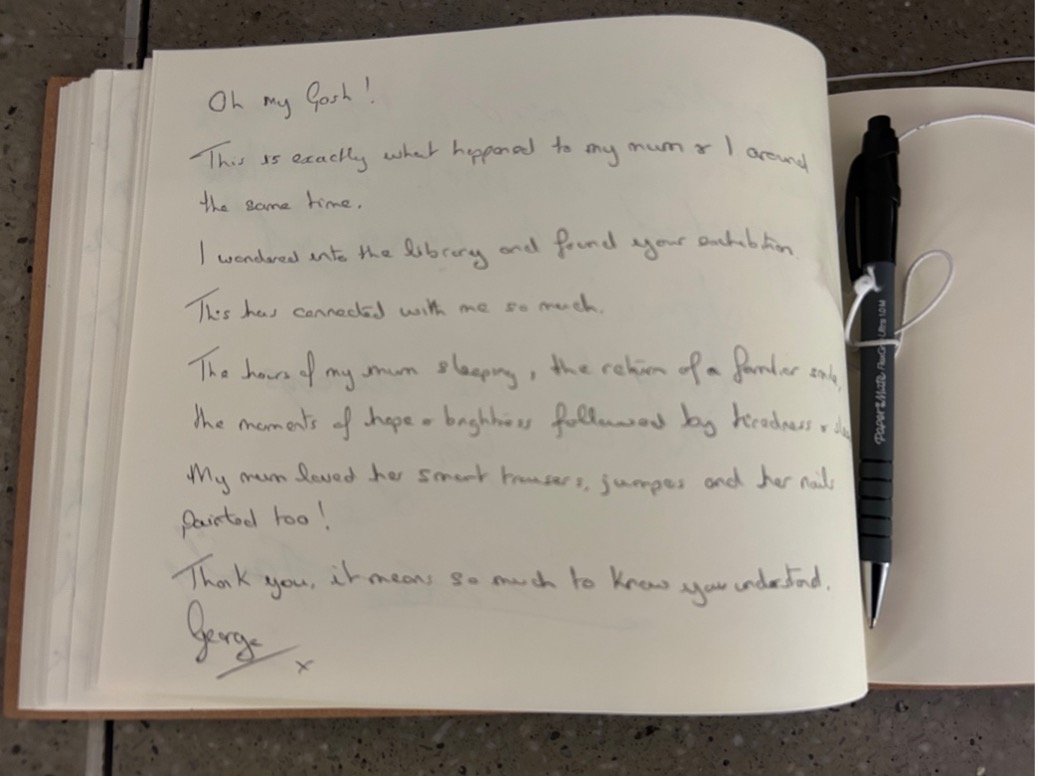 Oh my Gosh!
This is exactly what happened to my mum & I around
the same time.
I wandered into the library and found your exhibition.
This has connected with me so much.
The hours of my mum sleeping, the return of a familiar smile,
the moments of hope & brightness followed by tiredness &
My mum loved her smart trousers, jumpers and her nails
painted too!
Thank you, it means so much to know you understand.
George
x
PAPER MATE FlexGrip Ultra 1.0 M